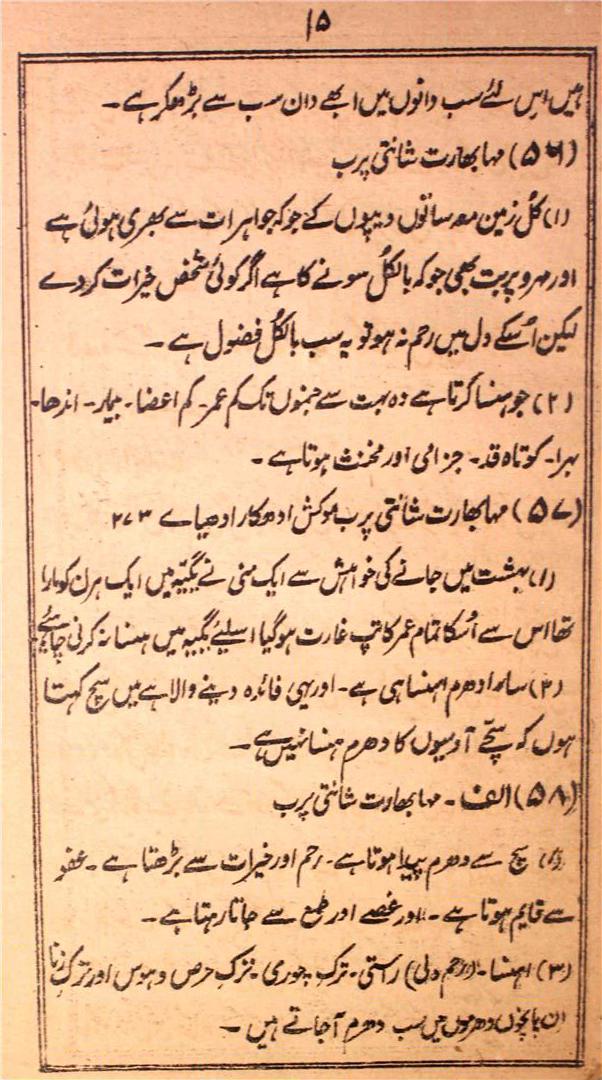 ۱۵
ہیں اس لئے سب دانوں میں ابھے دان سب سے بڑھکر ہے ۔
(۵۶) مہابھارت شانتی پرب
(۱) کُل زمین معہ ساتوں دیپوں کے جو کہ جواہرات سے بھری ہوئی ہے
اور میرو پربت بھی جو کہ بالکل سونے کا ہے اگر کوئی شخص خیرات کر دے
لیکن اُسکے دل میں رحم نہ ہو تو یہ سب بالکل فضول ہے ۔
(۲) جو ہنسا کرتا ہے وہ بہت سے جنموں تک کم عمر ۔ کم اعضا ۔ بیمار ۔ اندھا ۔
بہرا ۔ کوتاہ قد ۔ جزامی اور مخنث ہوتا ہے ۔
(۵۷) مہابھارت شانتی پرب موکش ادھکار ادھیاے ۲۷۳
(۱) بہشت میں جانے کی خواہش سے ایک منی نے یگیہ میں ایک ہرن کو مارا
تھا اس سے اُسکا تمام عمر کا تپ غارت ہوگیا اسلیے یگیہ میں ہنسا نہ کرنی چاہئے
(۲) سارا دھرم اہنسا ہی ہے ۔ اور یہی فائدہ دینے والا ہے میں سچ کہتا
ہوں کہ سچے آدمیوں کا دھرم ہنسا نہیں ہے ۔
(۵۸) الف ۔ مہابھارت شانتی پرب
(۱) سچ سے دھرم پیدا ہوتا ہے ۔ رحم اور خیرات سے بڑھتا ہے ۔ عفو
سے قایم ہوتا ہے ۔ اور غصے اور طمع سے جاتا رہتا ہے ۔
(۳) اہنسا ۔ (رحم دلی) راستی ۔ ترک چوری ۔ ترک حرص و ہوس اور ترک زنا
ان پانچوں دھرموں میں سب دھرم آجاتے ہیں ۔